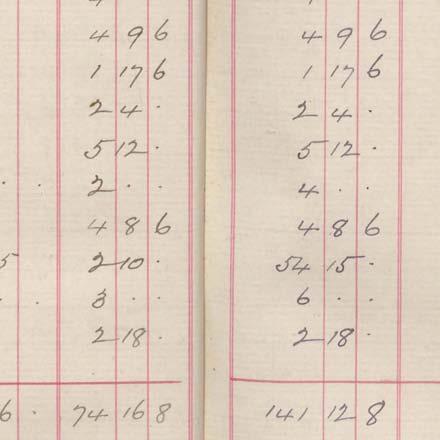 4 9 6 4 9 6
1 17 6 1 17 6
2 4 · 2 4 ·
5 12 · 5 12 ·
· · 2 · · 4 · ·
4 8 6 4 8 6
5 2 10 · 54 15 ·
· · 3 · · 6 · ·
2 18 · 2 18 ·
6 · 74 16 8 141 12 8